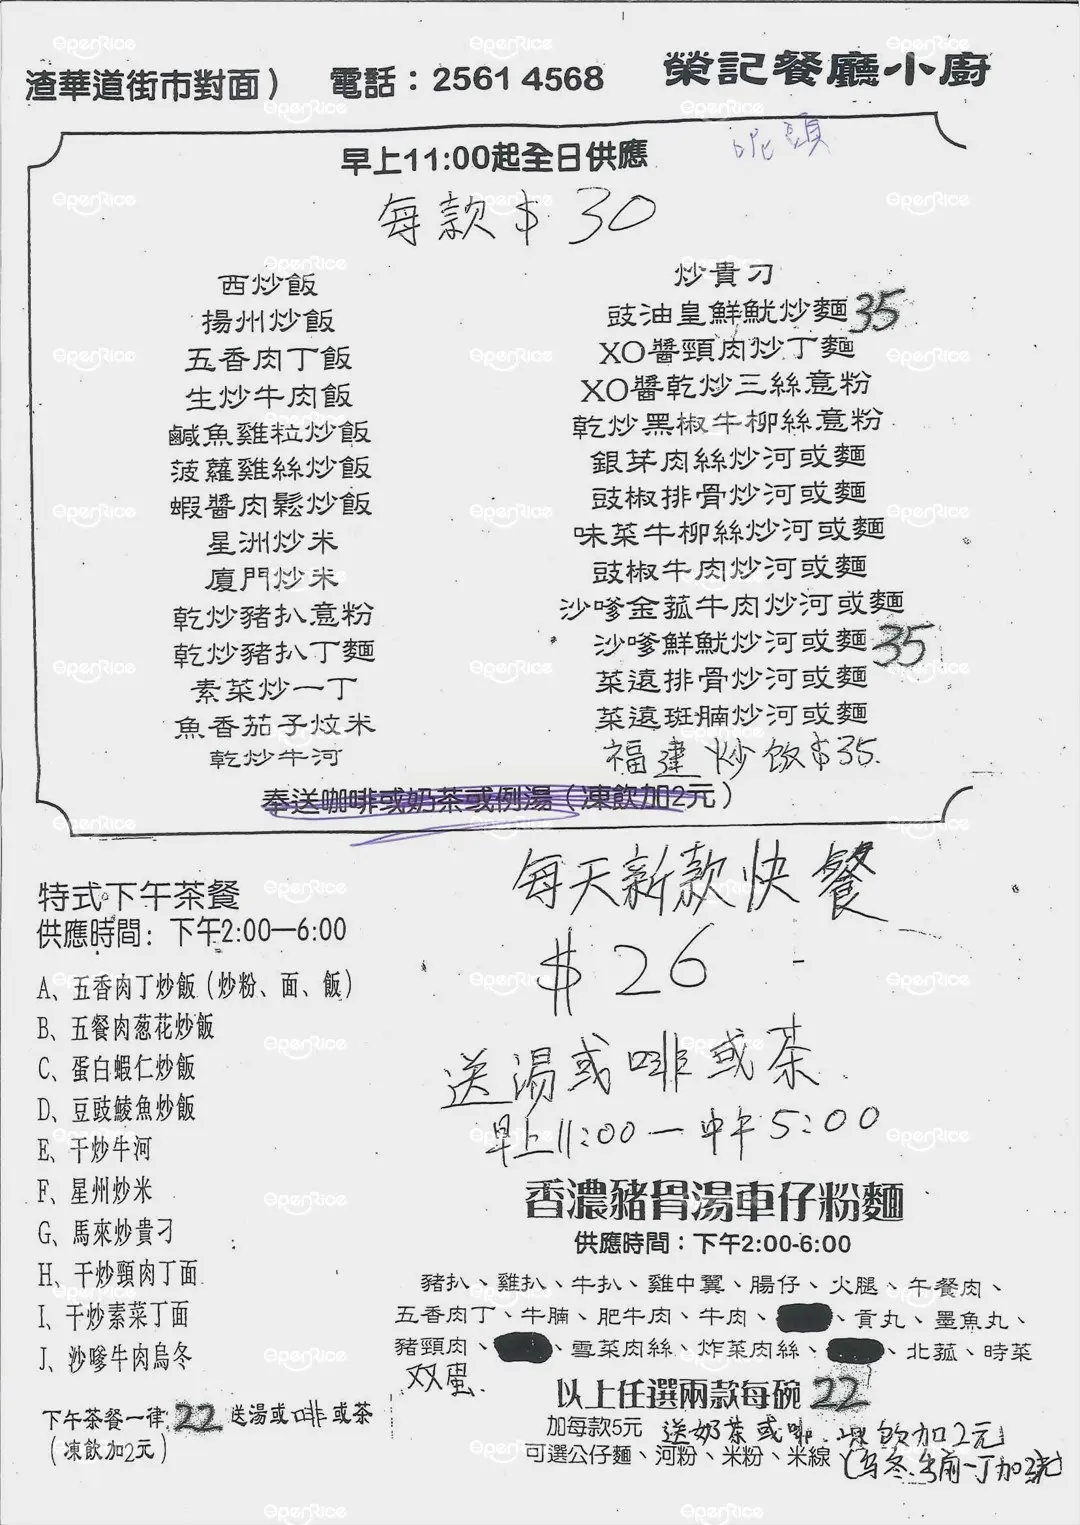 渣華道街市對面) 電話：2561 4568 榮記餐廳小廚
早上11:00起全日供應
每款$30
西炒飯
揚州炒飯
五香肉丁飯
生炒牛肉飯
鹹魚雞粒炒飯
菠蘿雞絲炒飯
蝦醬肉鬆炒飯
星洲炒米
廈門炒米
乾炒豬扒意粉
乾炒豬扒丁麵
素菜炒一丁
魚香茄子炆米
乾炒牛河
炒貴刁
豉油皇鮮魷炒麵 35
XO醬頸肉炒丁麵
XO醬乾炒三絲意粉
乾炒黑椒牛柳絲意粉
銀芽肉絲炒河或麵
豉椒排骨炒河或麵
味菜牛柳絲炒河或麵
豉椒牛肉炒河或麵
沙嗲金菰牛肉炒河或麵
沙嗲鮮魷炒河或麵 35
菜遠排骨炒河或麵
菜遠斑腩炒河或麵
福建炒飯$35.
奉送咖啡或奶茶或例湯（凍飲加2元）
特式下午茶餐
供應時間：下午2:00—6:00
A、五香肉丁炒飯（炒粉、面、飯）
B、五餐肉葱花炒飯
C、蛋白蝦仁炒飯
D、豆豉鯪魚炒飯
E、干炒牛河
F、星州炒米
G、馬來炒貴刁
H、干炒頸肉丁面
I、干炒素菜丁面
J、沙嗲牛肉烏冬
下午茶餐一律 22 送湯或啡或茶
（凍飲加2元）
每天新款快餐
$26
送湯或啡或茶
早上11:00一中午5:00
香濃豬骨湯車仔粉麵
供應時間：下午2:00-6:00
豬扒、雞扒、牛扒、雞中翼、腸仔、火腿、午餐肉、
五香肉丁、牛腩、肥牛肉、牛肉、、貢丸、墨魚丸、
豬頸肉、、雪菜肉絲、炸菜肉絲、、北菰、時菜
双蛋.
以上任選兩款每碗 22
加每款5元 送奶茶或啡.凍飲加2元
可選公仔麵、河粉、米粉、米線（烏冬.出前一丁加2元）
OpenRice